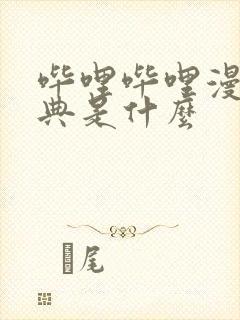 哔哩哔哩漫
典是什麼
尾